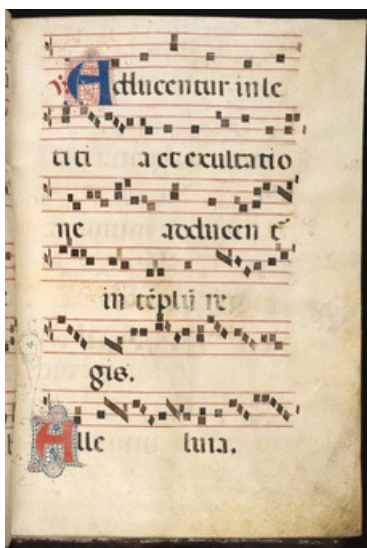 Adducentur in le
ti ti a et exultatio
ne adducen t̄
in tēplū re
gis.
Alle luia.